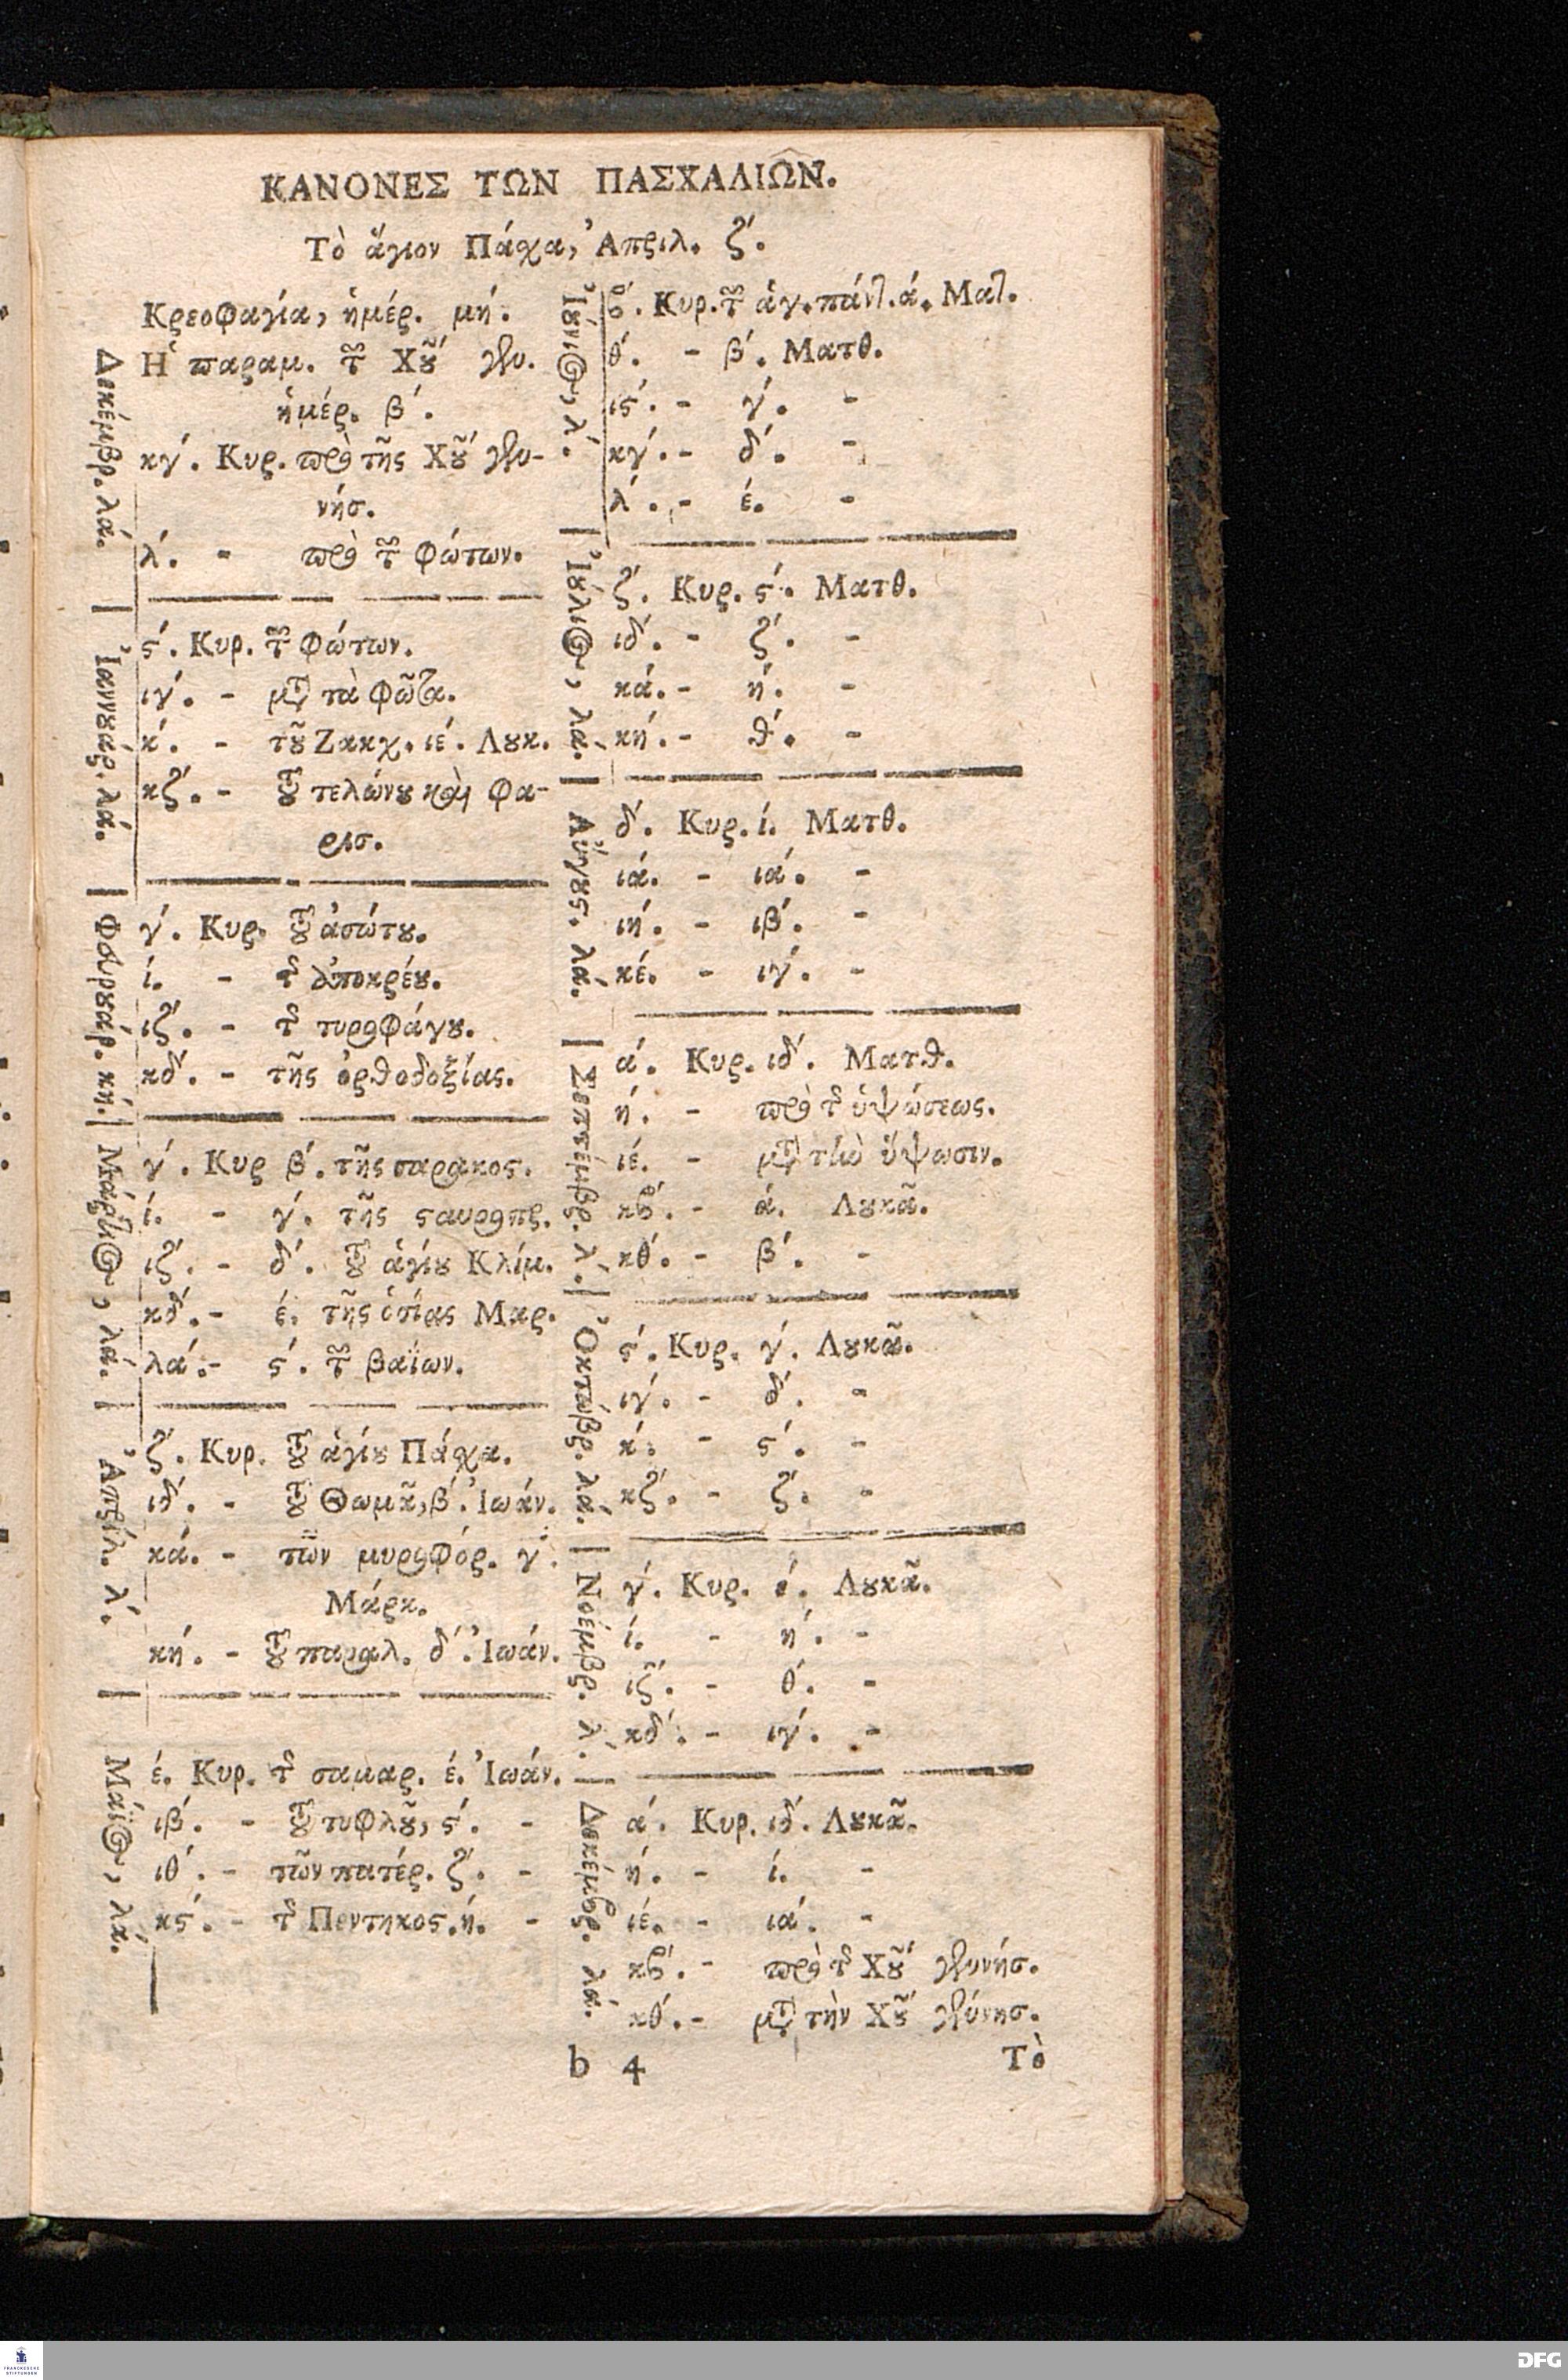 ΚΑΝΟΝΕΣ ΤΩΝ ΠΑΣΧΑΛΙΩ͂Ν.
Τὸ ἅγιον Πάχα, Ἀπριλ. ζ΄.
Δεκέμβρ. λά.
Κρεοφαγία, ἡμέρ. μή.
Ἡ παραμ. τῶν Χȣ͂ γεν.
ἡμέρ. β΄.
κγ΄. Κυρ. πρὸ τῆς Χȣ͂ γεν-
νήσ.
λ΄. - πρὸ τῶν Φώτων.
Ἰαννȣάρ. λά.
ς΄. Κυρ. τῶν Φώτων.
ιγ΄. - μετὰ τὰ Φῶτα.
κ΄. - τȣ͂ Ζακχ. ιέ. Λȣκ.
κζ΄. - τȣ͂ τελώνȣ καὶ Φα-
ρισ.
Φευρȣάρ. κή.
γ΄. Κυρ. τȣ͂ ἀσώτȣ.
ί. - τῆς ἀποκρέȣ.
ιζ΄. - τῆς τυροφάγȣ.
κδ΄. - τῆς ὀρθοδοξίας.
Μάρτιος, λά.
γ΄. Κυρ β΄. τῆς σαρακος.
ί. - γ΄. τῆς ςαυροπρ.
ιζ΄. - δ΄. τȣ͂ ἁγίȣ Κλίμ.
κδ΄. - έ. τῆς ὁσίας Μαρ.
λά. - ς΄. τῶν βαΐων.
Ἀπρίλ. λ΄.
ζ΄. Κυρ. τȣ͂ ἁγίȣ Πάχα.
ιδ΄. - τȣ͂ Θωμᾶ, β΄. Ἰωάν.
κά. - τῶν μυροφόρ. γ΄.
Μάρκ.
κή. - τȣ͂ παραλ. δ΄. Ἰωάν.
Μάϊος, λά.
έ. Κυρ. τῆς σαμαρ. έ. Ἰωάν.
ιβ΄. - τȣ͂ τυφλȣ͂, ς΄. -
ιθ΄. - τῶν πατέρ. ζ΄. -
κς΄. - τῆς Πεντηκος. ή. -
Ἰȣ́νιος, λ΄.
β΄. Κυρ. τῶν ἁγ. πάντ. ά. Ματ.
θ΄. - β΄. Ματθ.
ις΄. - γ΄. -
κγ΄. - δ΄. -
λ΄. - έ. -
Ἰȣ́λιος, λά.
ζ΄. Κυρ. ς΄. Ματθ.
ιδ΄. - ζ΄. -
κά. - ή. -
κή. - θ΄. -
Αὔγȣς. λά.
δ΄. Κυρ. ί. Ματθ.
ιά. - ιά. -
ιή. - ιβ΄. -
κέ. - ιγ΄. -
Σεπτέμβρ. λ΄.
ά. Κυρ. ιδ΄. Ματθ.
ή. - πρὸ τῆς ὑψώσεως.
ιέ. - μετὰ τὴν ὕψωσιν.
κβ΄. - ά. Λȣκᾶ.
κθ΄. - β΄. -
Ὀκτώβρ. λά.
ς΄. Κυρ. γ΄. Λȣκᾶ.
ιγ΄. - δ΄. -
κ΄. - ς΄. -
κζ΄. - ζ΄. -
Νοέμβρ. λ΄.
γ΄. Κυρ. έ. Λȣκᾶ.
ί. - ή. -
ιζ΄. - θ΄. -
κδ΄. - ιγ΄. -
Δεκέμβρ. λά.
ά. Κυρ. ιδ΄. Λȣκᾶ.
ή. - ί. -
ιέ. - ιά. -
κβ΄. - πρὸ τῆς Χȣ͂ γεννήσ.
κθ΄. - μετὰ τὴν Χȣ͂ γέννησ.
b 4
Τὸ
FRANCKESCHE
STIFTUNGEN
DFG